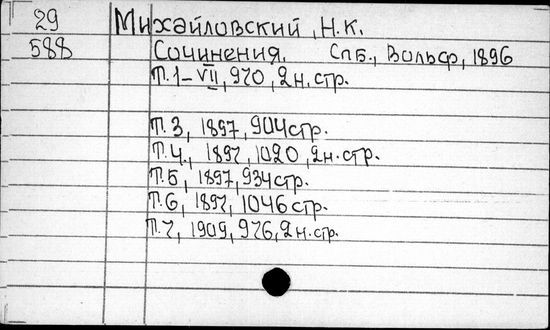 29 Михайловский, Н.К.
588 Сочинения. Спб., Вольф, 1896
Т.1–VII, 970, 2н.стр.
Т.3, 1897, 904стр.
Т.4., 1897, 1020, 2н.стр.
Т.5, 1897, 934стр.
Т.6, 1897, 1046стр.
Т.7, 1909, 976, 2н.стр.